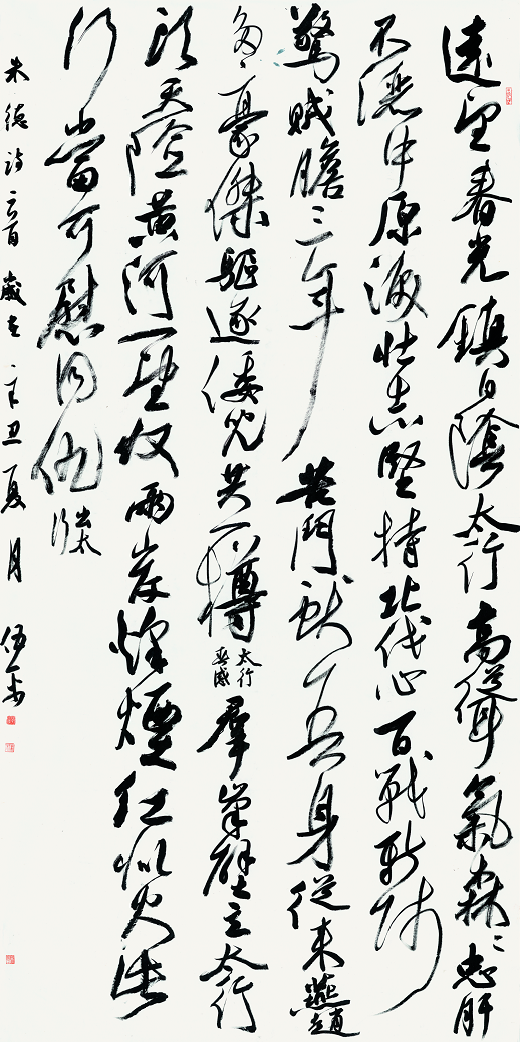 遠望春光鎮日陰太行高聳氣森〻忠肝
不灑中原淚壯志堅持北伐心百戰新師
驚賊膽三年苦鬥獻吾身從來燕趙
多豪傑驅逐倭兒共一樽 太行春感 群峯壁立太行
頭天險黃河一望收兩岸烽煙紅似火此
行當可慰同仇 出太行
朱德詩二首歲在辛丑夏月